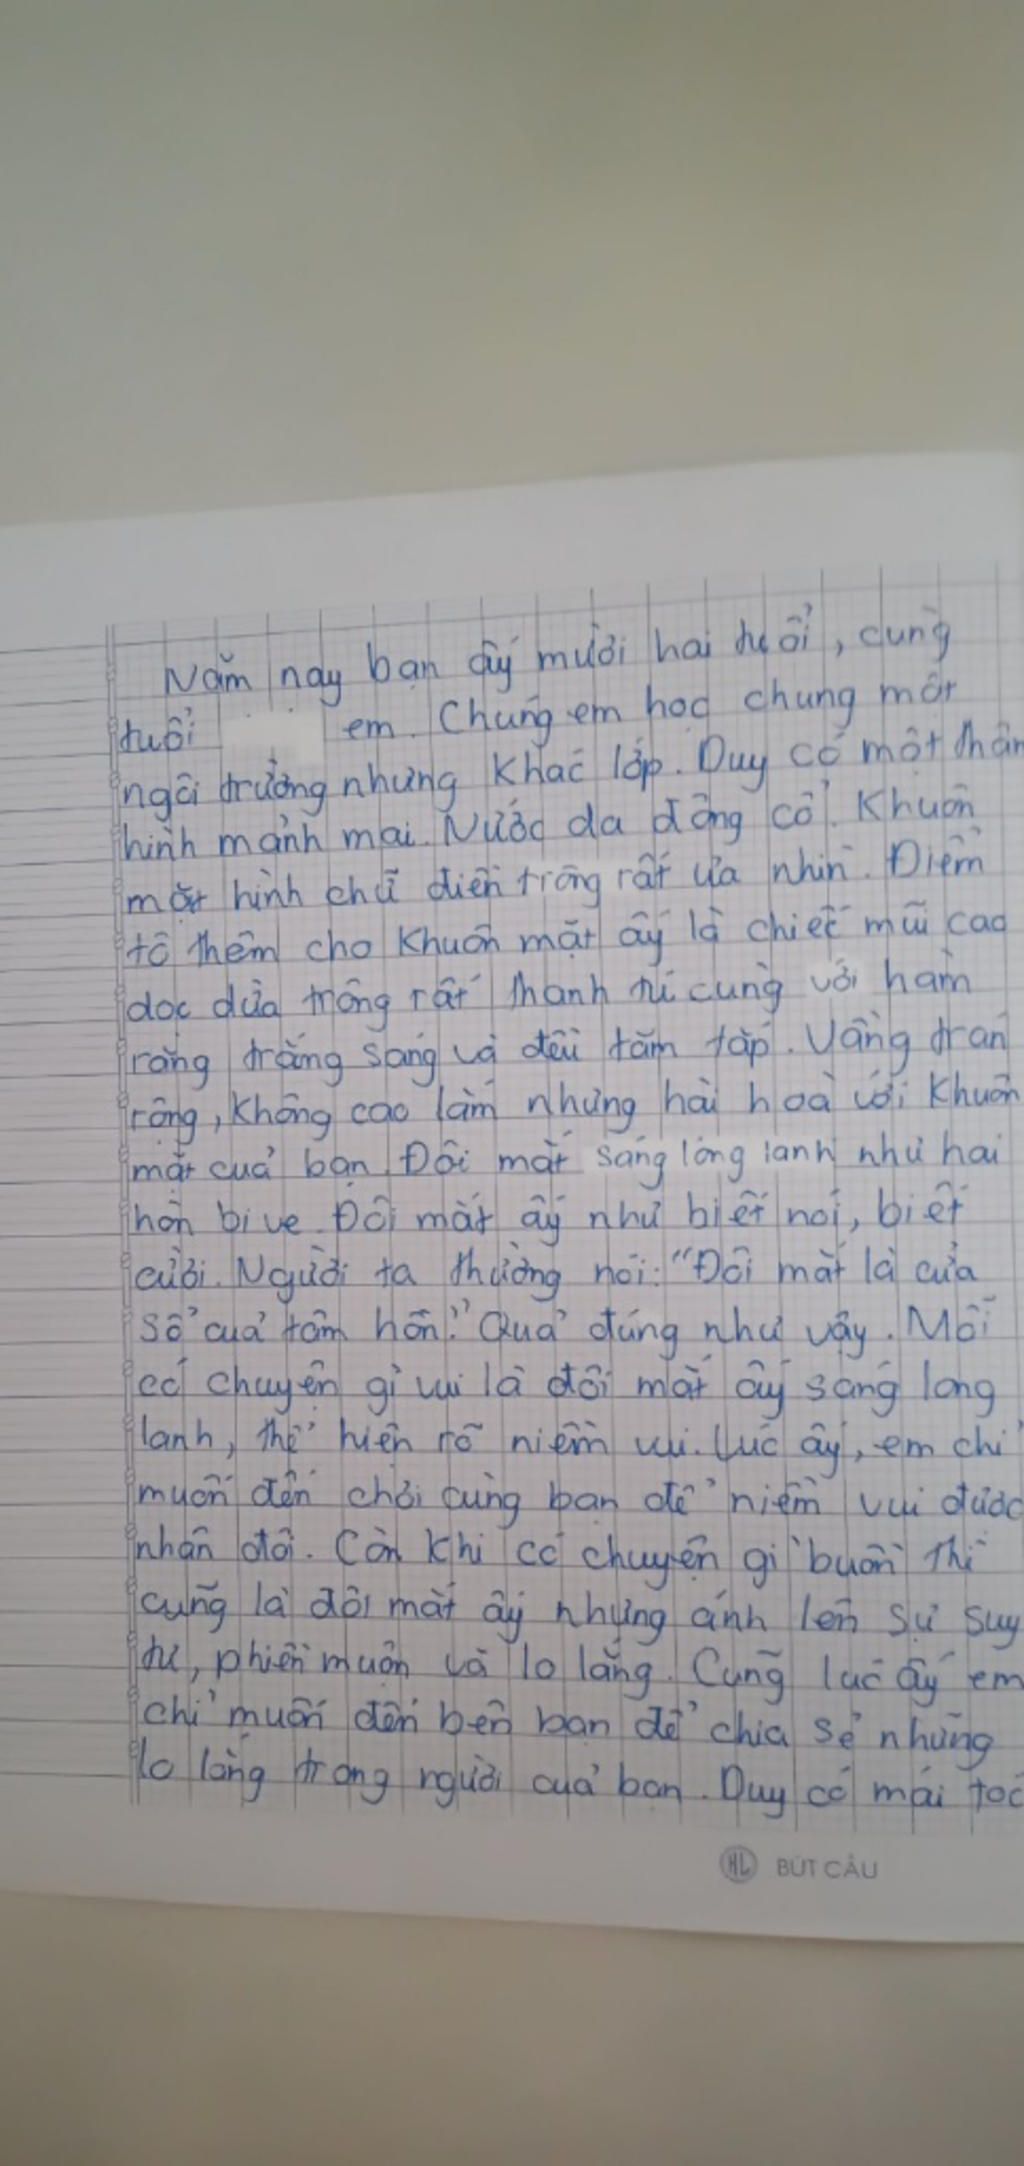 Năm nay bạn ấy mười hai tuổi, cùng
tuổi em. Chúng em học chung một
ngôi trường nhưng khác lớp. Duy có một thân
hình mảnh mai. Nước da đồng cổ. Khuôn
mặt hình chữ điền trông rất ưa nhìn. Điểm
tô thêm cho khuôn mặt ấy là chiếc mũi cao
dọc dừa trông rất thanh tú cùng với hàm
răng trắng sáng và đều tăm tắp. Vầng trán
rộng, không cao lắm nhưng hài hoà với khuôn
mặt của bạn. Đôi mắt sáng long lanh như hai
hòn bi ve. Đôi mắt ấy như biết nói, biết
cười. Người ta thường nói: "Đôi mắt là cửa
sổ của tâm hồn." Quả đúng như vậy. Mỗi
có chuyện gì vui là đôi mắt ấy sáng long
lanh, thể hiện rõ niềm vui. Lúc ấy, em chỉ
muốn đến chơi cùng bạn để niềm vui được
nhân đôi. Còn khi có chuyện gì buồn thì
cũng là đôi mắt ấy nhưng ánh lên sự suy
tư, phiền muộn và lo lắng. Cũng lúc ấy em
chỉ muốn đến bên bạn để chia sẻ những
lo lắng trong người của bạn. Duy có mái tóc
HL BÚT CÂU